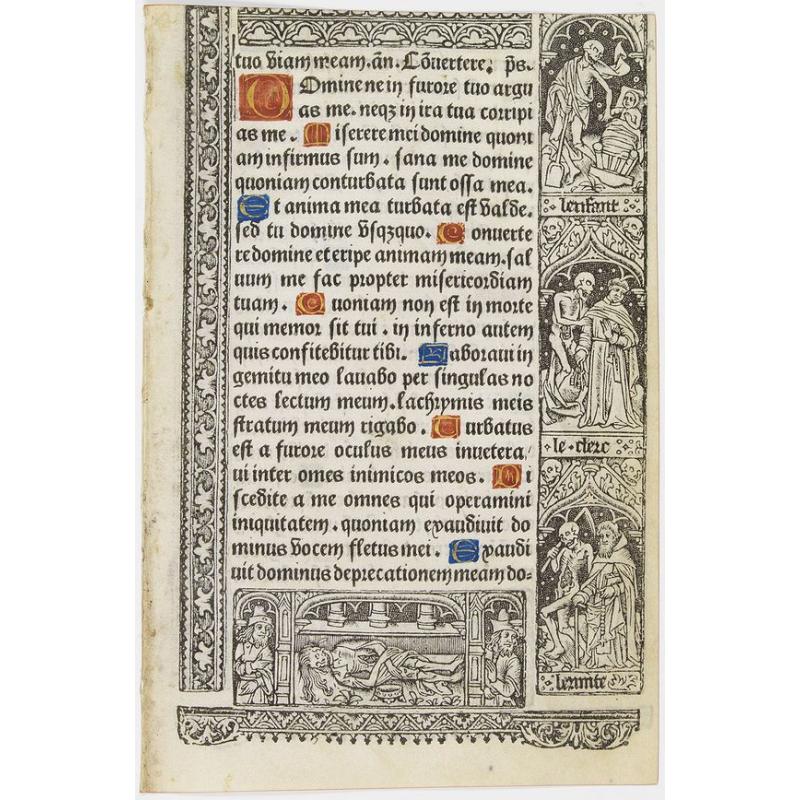 tuo viam meam. an̄. Cōuertere. p̄s.
Omine ne in furore tuo argu
as me. neqz in ira tua corripi
as me. Miserere mei domine quoni
am infirmus sum. sana me domine
quoniam conturbata sunt ossa mea.
Et anima mea turbata est valde.
sed tu domine vsqzquo. Conuerte
re domine et eripe animam meam. sal
uum me fac propter misericordiam
tuam. Quoniam non est in morte
qui memor sit tui. in inferno autem
quis confitebitur tibi. Laboraui in
gemitu meo lauabo per singulas no
ctes lectum meum. lachrymis meis
stratum meum rigabo. Turbatus
est a furore oculus meus inuetera
ui inter omēs inimicos meos. Di
scedite a me omnes qui operamini
iniquitatem. quoniam exaudiuit do
minus vocem fletus mei. Exaudi
uit dominus deprecationem meam do=
lenfant
le clerc
lermite